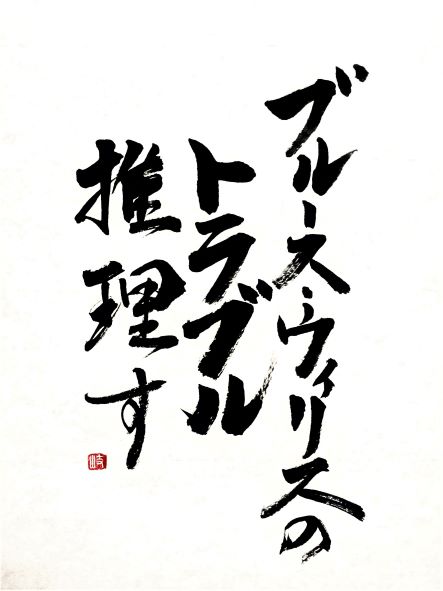 ブルース・ウィリスの
トラブル
推理す